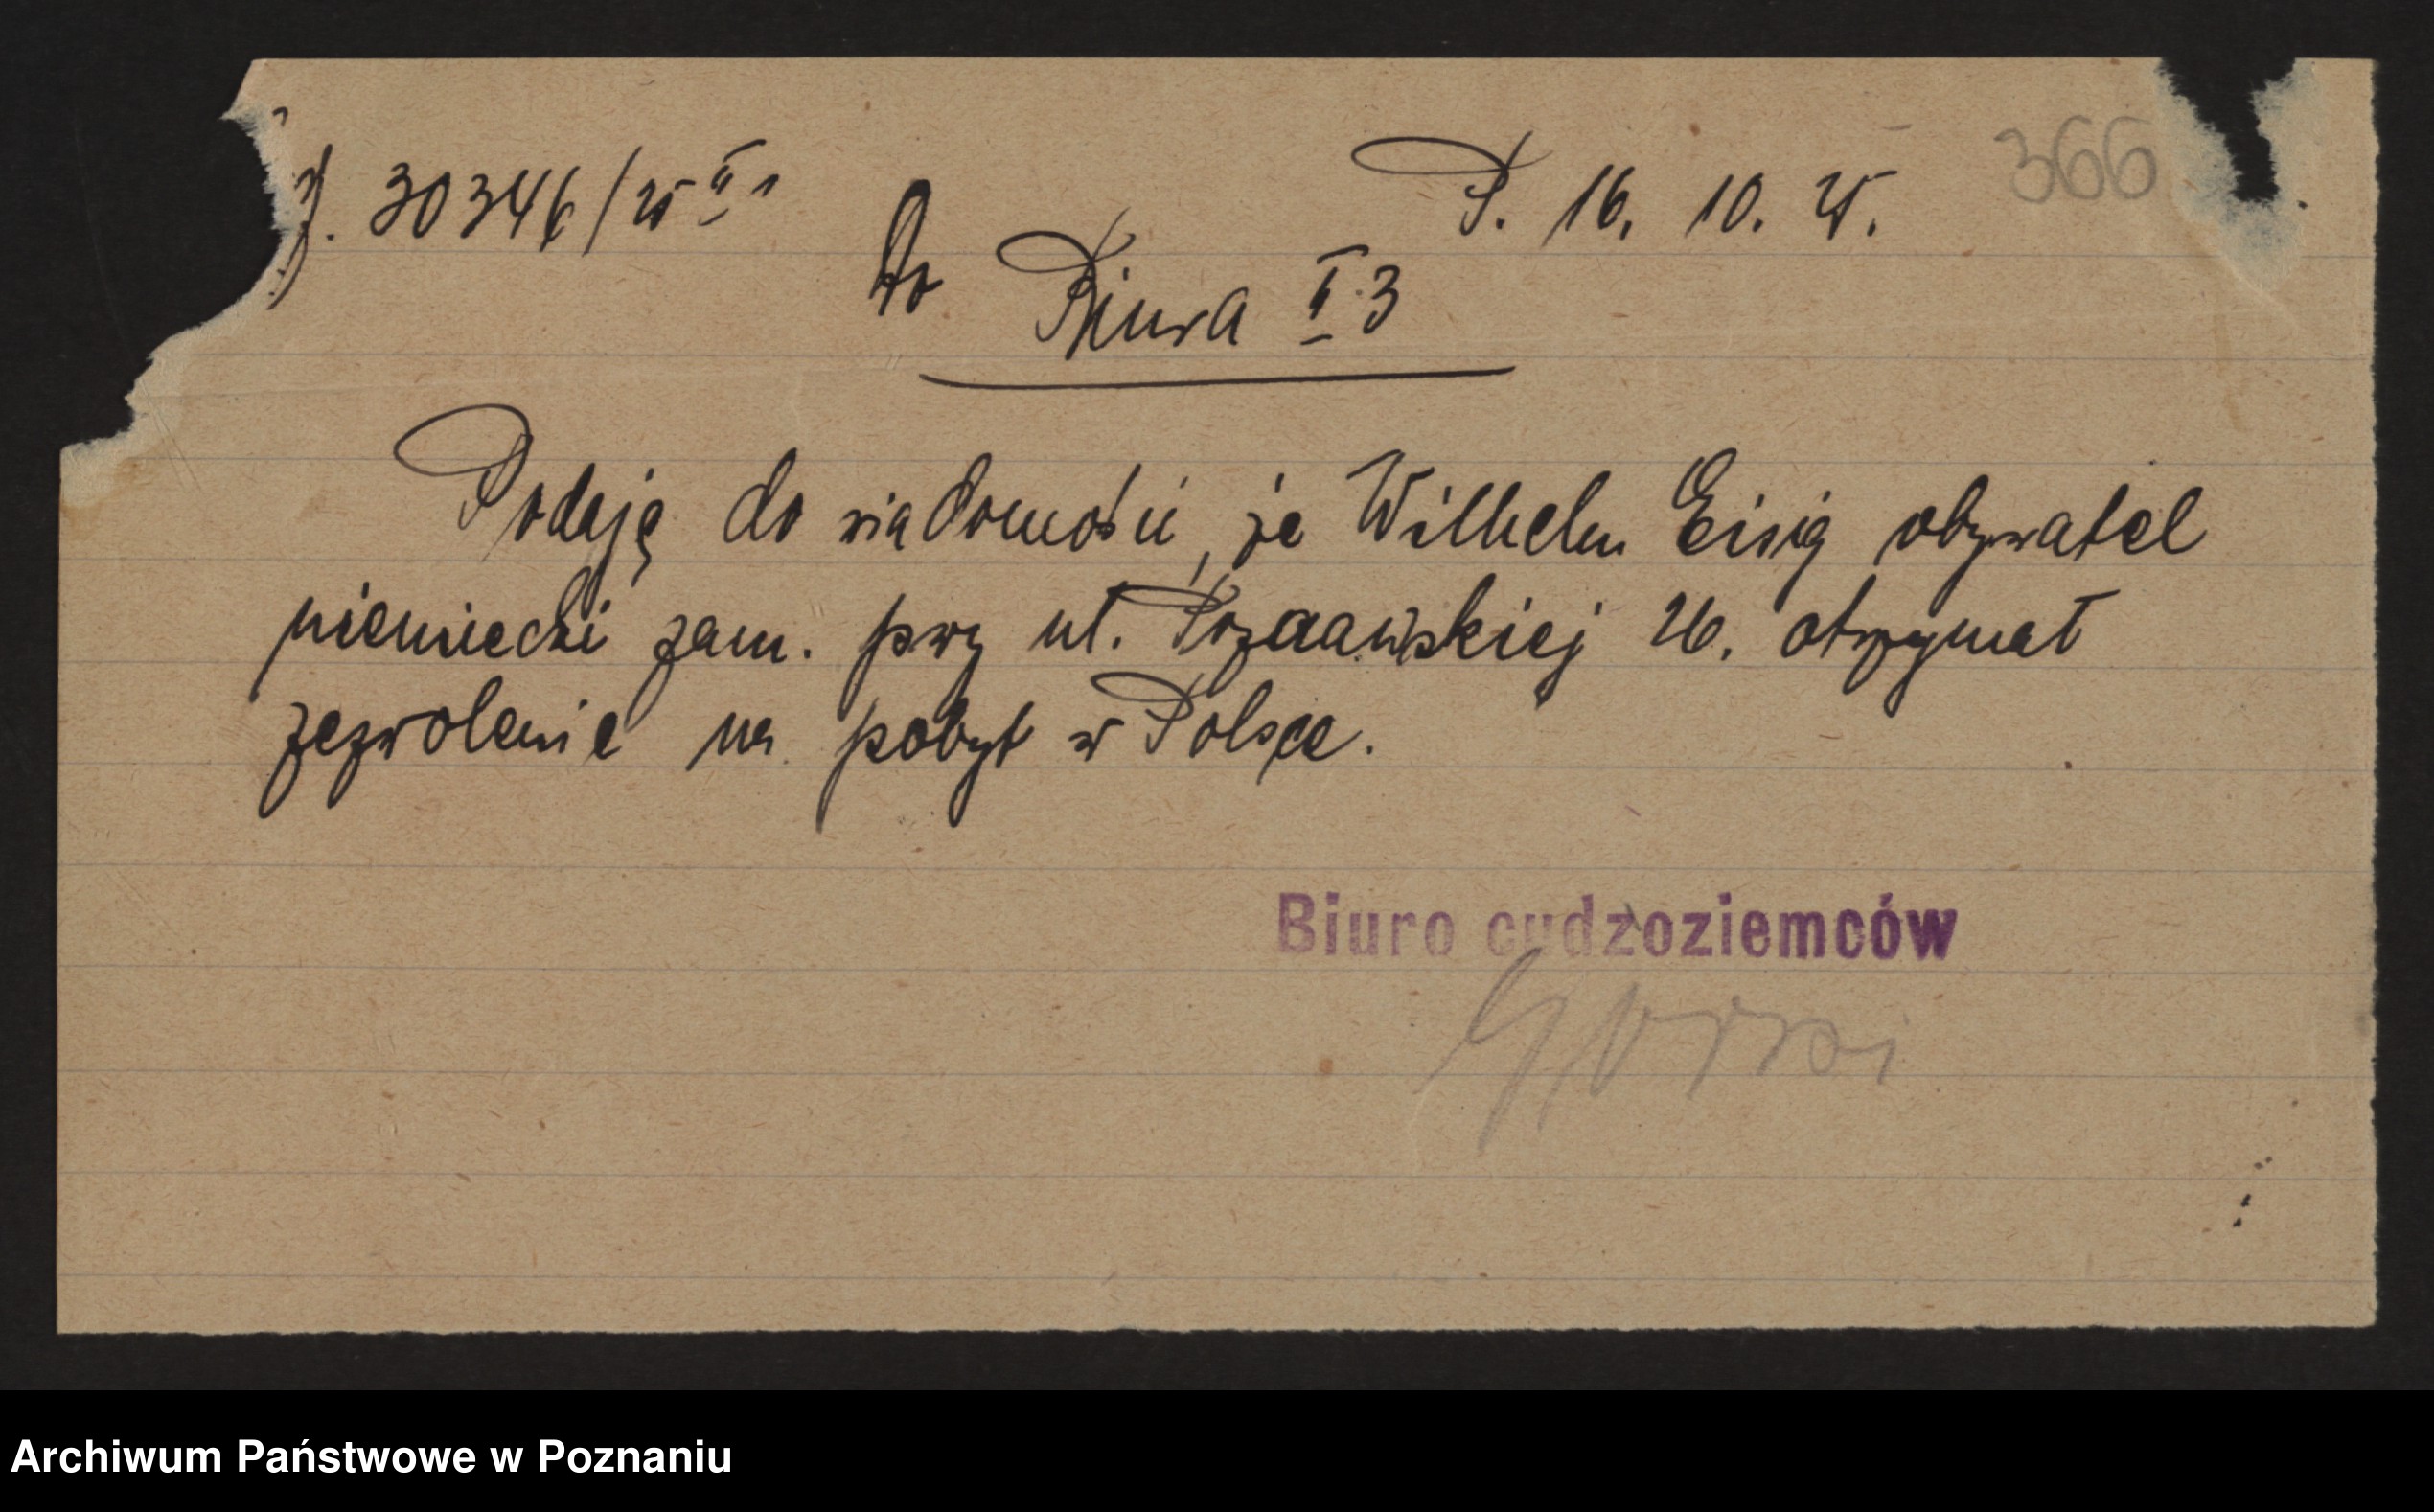 J. 30346/25 II 1
P. 16. 10. 25.
366
Do
Biura II 3
Podaję do wiadomości, że Wilhelm Eisig obywatel
niemiecki zam. przy ul. 26. otrzymał
zezwolenie na pobyt w Polsce.
Biuro cudzoziemców
Archiwum Państwowe w Poznaniu